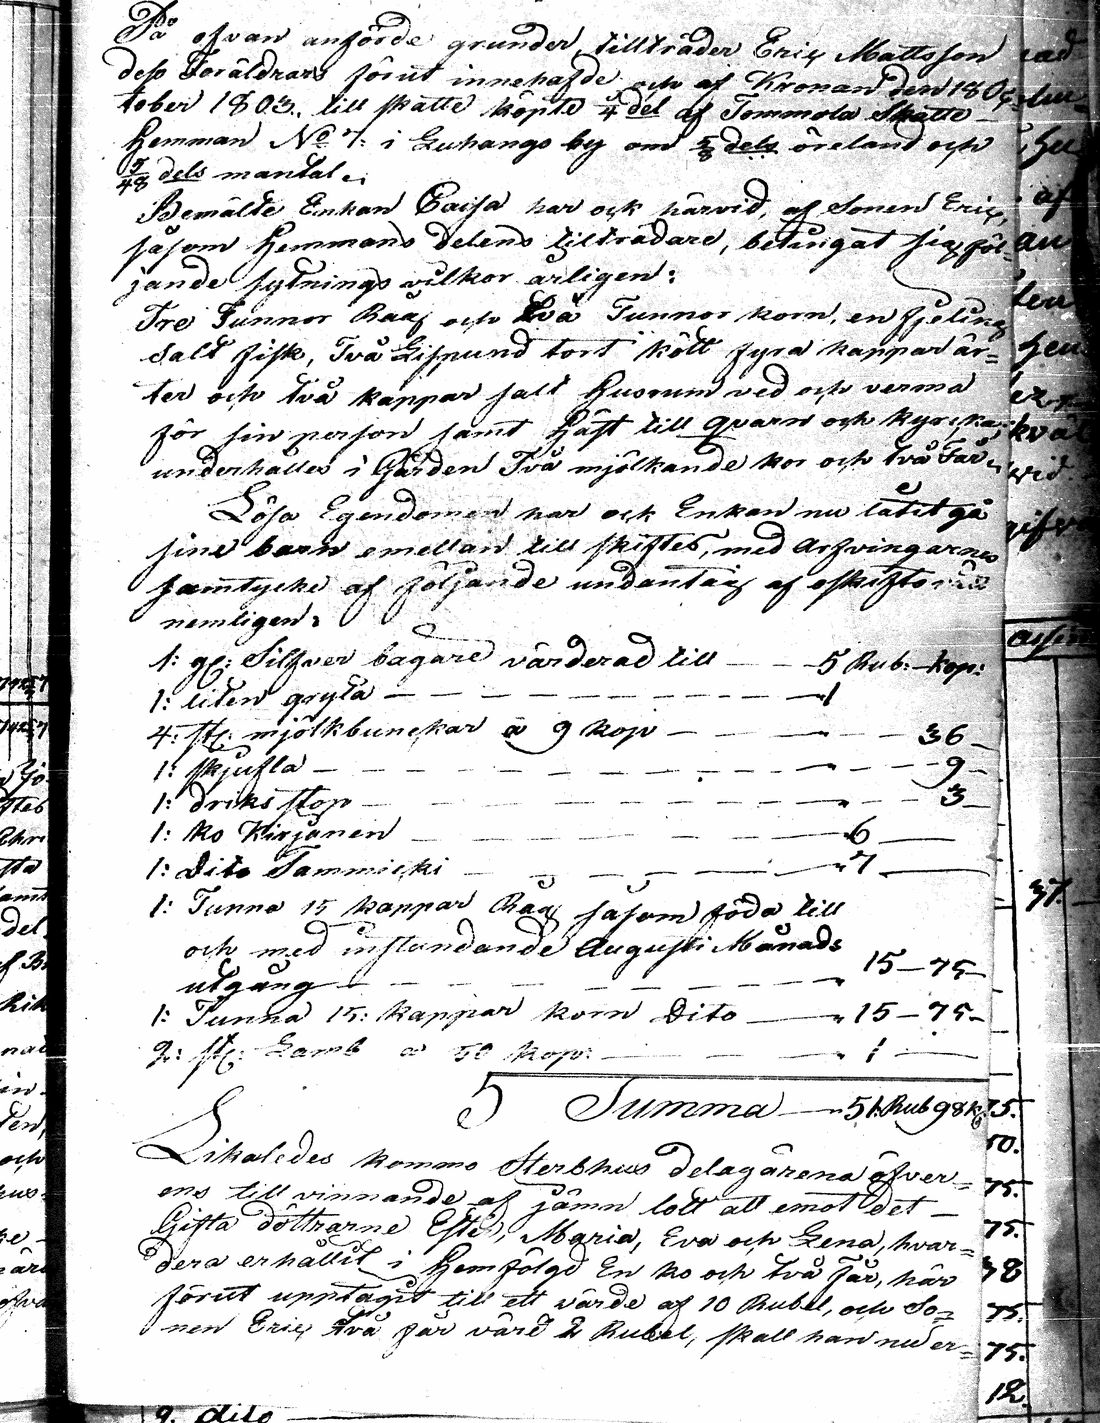 På ofvan anförde grunder tillträder Eric Mattsson
dess Foräldrars förut innehafde och af Kronan den 18 Oc
tober 1803. till skatte köpte 1/4 del af Tommola Skatte
Hemman No 7: i Luhango by om 5/8 dels öreland och
5/48 dels mantal.
Bemälte Enkan Caisa har ock härvid, af Sonen Eric,
såsom Hemmans delens tillträdare, betingat sig föl-
jande sytnings vilkor årligen:
Tre Tunnor Råg och två Tunnor korn, en fjeling
salt fisk, Två Lispund tort kött fyra kappar är-
ter och två kappar salt Husrum ved och verma
för sin person samt Häst till qvarn och kyrcka,
underhålles i Gården Två mjölkande kor och två Får.
Lösa Egendomen har ock Enkan nu låtit gå
sine barn emellan till skiftes, med Arfvingarnes
samtycke af följande undantag af oskifto
nemligen:
1: gl: Silfver bagare värderad till — 5 Rub: — kop:
1: liten gryta — 1
4: st: mjölkbunckar a 9 kop — 36
1: skjufla — 9
1: driks stop — 3
1: ko Kirjanen — 6
1: Dito Tammicki — 7
1: Tunna 15 kappar Råg såsom föda till
och med instundande Augusti Månads
utgång — 15 — 75
1: Tunna 15: kappar korn Dito — 15 — 75
2: st: Lamb a 50 kop: — 1
Summa — 51 Rub 98 k
Likaledes kommo Sterbhus delagarena öfver-
ens till vinnande af jämn lott att emot det
Gifta döttrarne Ester, Maria, Eva och Lena, hvar-
dera erhållit i Hemfölgd En ko och två får, här
förut upptagit till ett värde af 10 Rubel, och So-
nen Eric två får värd 2 Rubel, skall han nu er-
9. dito